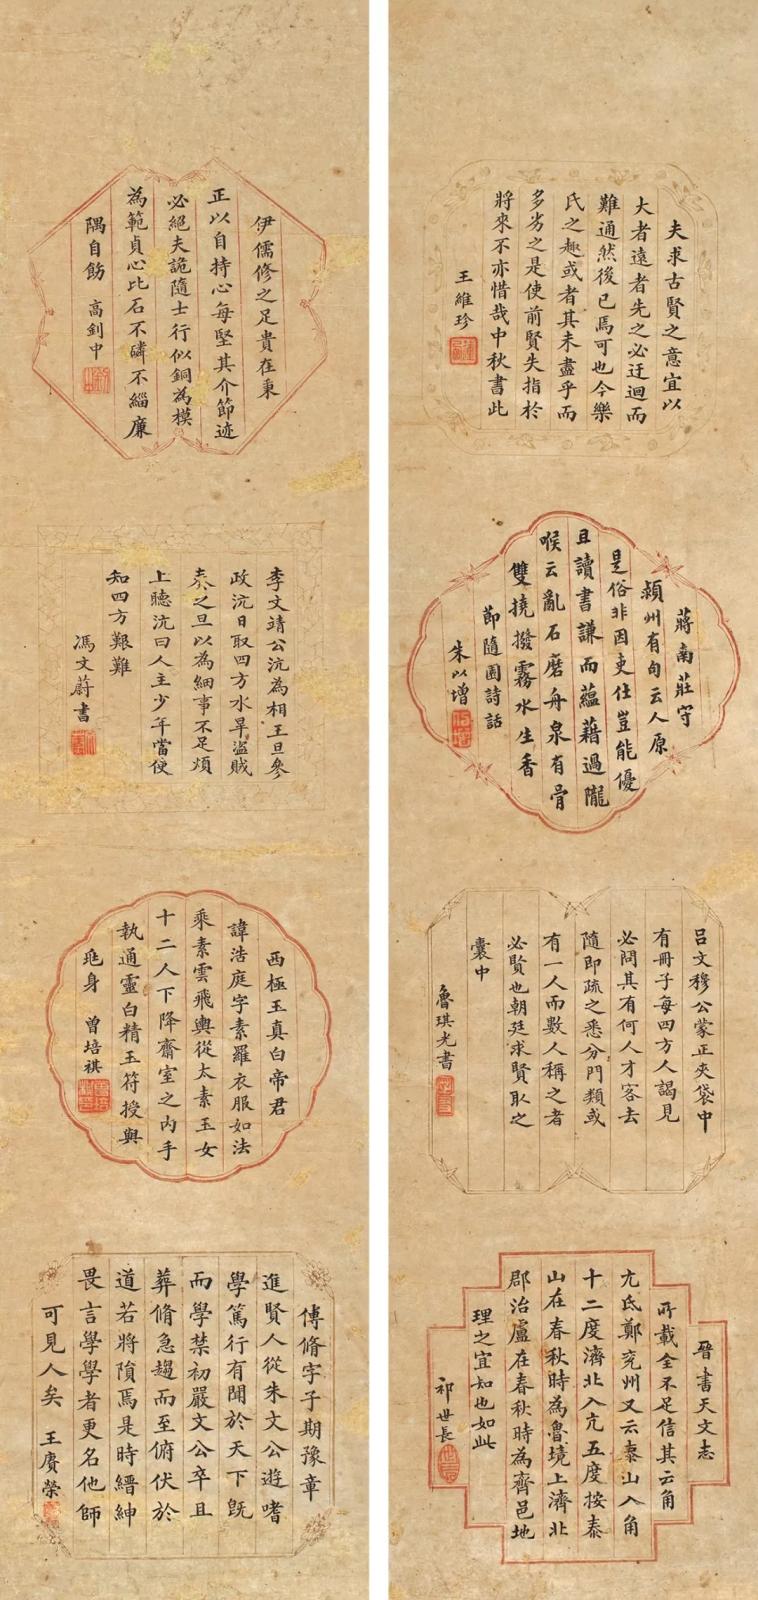 夫求古賢之意宜以
大者遠者先之必迂迴而
難通然後已焉可也今樂
氏之趣或者其未盡乎而
多劣之是使前賢失指於
將來不亦惜哉中秋書此
王維珍
蔣南莊守
潁州有句云人原
是俗非因吏仕豈能優
且讀書謙而蘊藉過隴
喉云亂石磨舟泉有骨
雙橈撥霧水生香
節隨園詩話
朱以增
呂文穆公蒙正夾袋中
有冊子每四方人謁見
必問其有何人才客去
隨即疏之悉分門類或
有一人而數人稱之者
必賢也朝廷求賢取之
囊中
魯琪光書
晉書天文志
所載全不足信其云角
亢氐鄭兗州又云泰山入角
十二度濟北入亢五度按泰
山在春秋時為魯境上濟北
郡治盧在春秋時為齊邑地
理之宜知也如此
祁世長
伊儒修之足貴在秉
正以自持心每堅其介節迹
必絕夫詭隨士行似銅為模
為範貞心比石不磷不緇廉
隅自飭 高釗中
李文靖公沆為相王旦參
政沆日取四方水旱盜賊
奏之旦以為細事不足煩
上聽沆曰人主少年當使
知四方艱難
馮文蔚書
西極王真白帝君
諱浩庭字素羅衣服如法
乘素雲飛輿從太素玉女
十二人下降齋室之內手
執通靈白精玉符授與
兆身 曾培祺
傅脩字子期豫章
進賢人從朱文公遊嗜
學篤行有聞於天下既
而學禁初嚴文公卒且
葬脩急趨而至俯伏於
道若將隕焉是時縉紳
畏言學學者更名他師
可見人矣 王賡榮